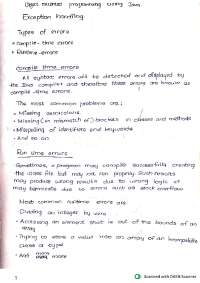 Object oriented programming using Java
Exception handling
Types of errors
• compile-time errors
• Runtime-errors
compile time errors
All syntax errors will be detected and displayed by
the Java compiler and therefore these errors are known as
compile-time errors.
The most common problems are;
• Missing semicolons
• Missing (or mismatch of) brackets in classes and methods
• Misspelling of identifiers and keywords
• And so on
Run time errors
Sometimes, a program may compile successfully creating
the class file but may not run properly. Such
may produce wrong results due to wrong logic or
may terminate due to errors such as stack overflow
Most common runtime errors are
• Dividing an integer by zero
• Accessing an element that is out of the bounds of an
array
• Trying to store a value into an array of an incompatible
class or type
• And many more
Scanned with OKEN Scanner